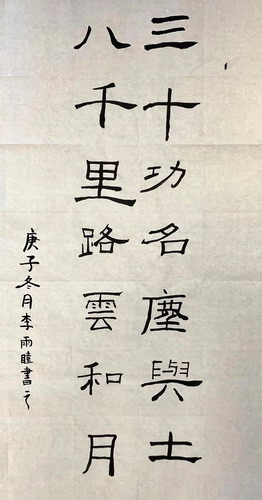 三十功名塵與土
八千里路雲和月
庚子冬月李雨瞳書之